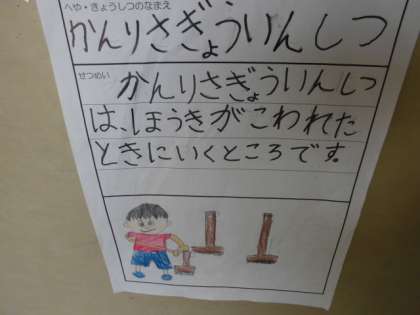 へや・きょうしつのなまえ
かんりさぎょういんしつ
せつめい
かんりさぎょういんしつ
は、ほうきがこわれた
ときにいくところです。